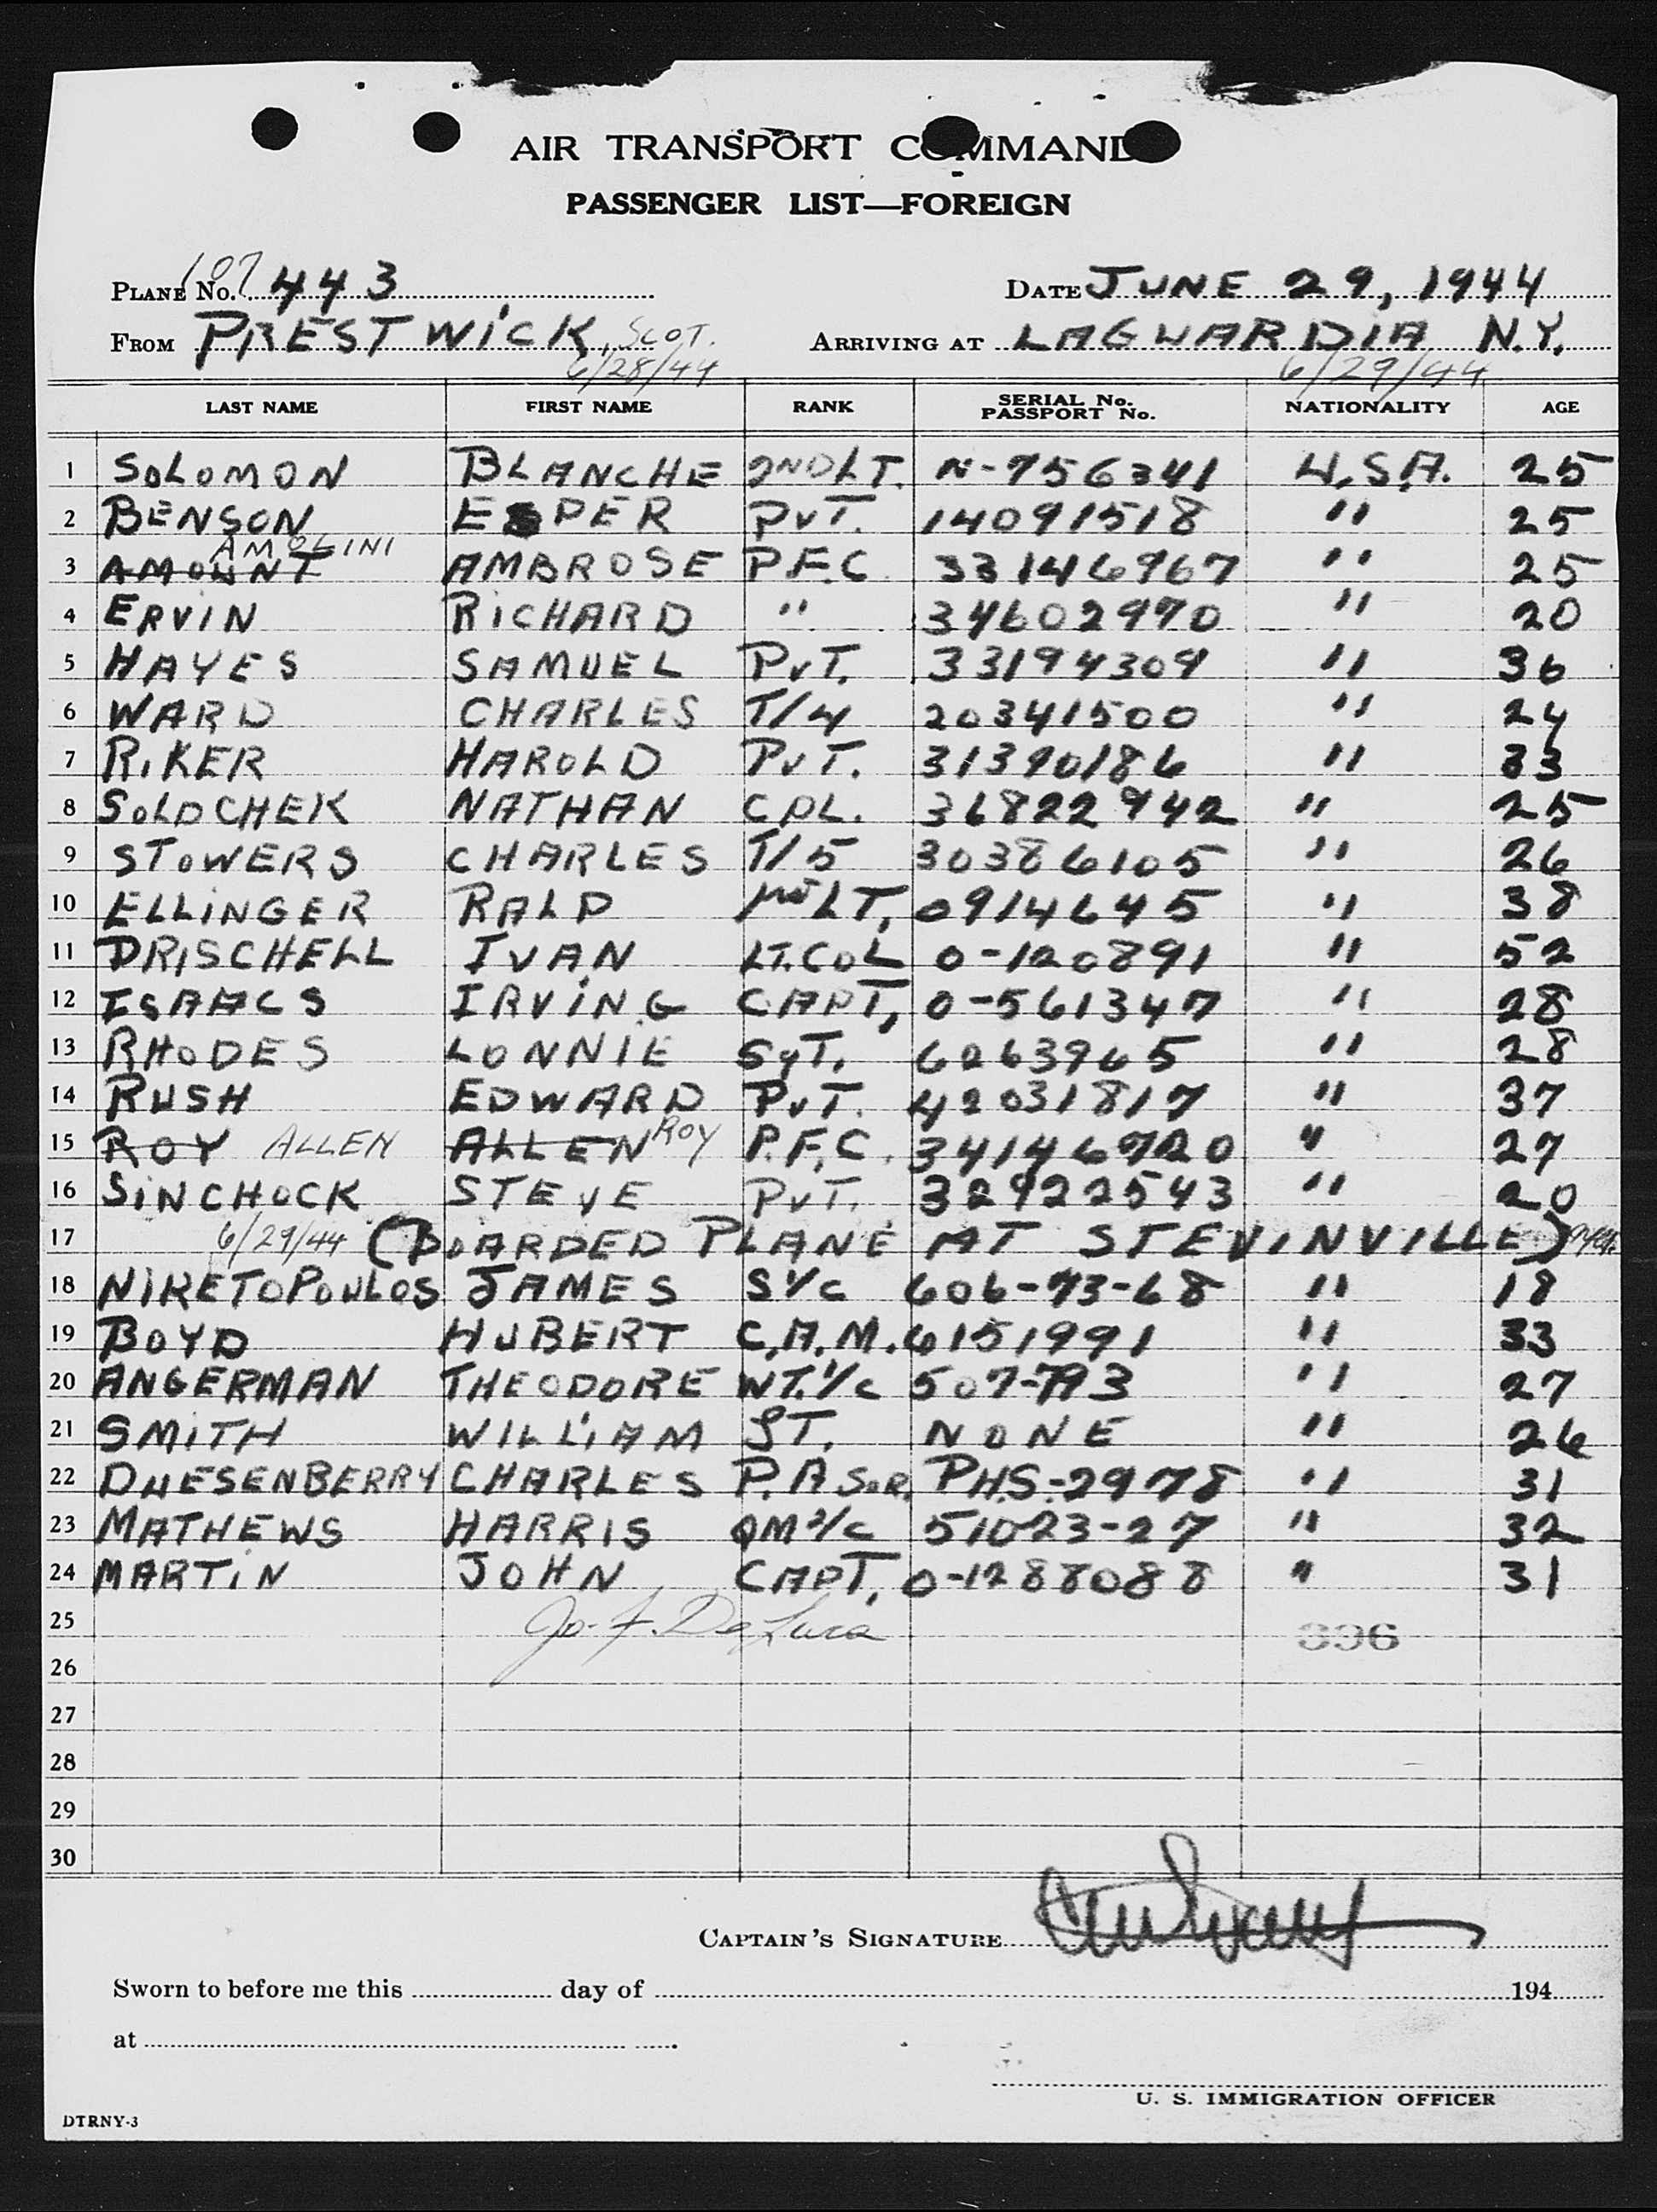 AIR TRANSPORT COMMAND
PASSENGER LIST—FOREIGN
PLANE No. 107443 DATE JUNE 29, 1944
FROM PRESTWICK, SCOT. ARRIVING AT LAGUARDIA N.Y.
6/28/44 6/29/44
LAST NAME FIRST NAME RANK SERIAL No. PASSPORT No. NATIONALITY AGE
1 SOLOMON BLANCHE 2ND LT. N-756341 U.S.A. 25
2 BENSON ESPER PVT. 14091518 " 25
3 AMOUNT AMOLINI AMBROSE P.F.C. 33146967 " 25
4 ERVIN RICHARD " 34602970 " 20
5 HAYES SAMUEL PVT. 33194309 " 36
6 WARD CHARLES T/4 20341500 " 24
7 RIKER HAROLD PVT. 31390186 " 33
8 SOLDCHEK NATHAN CPL. 36822942 " 25
9 STOWERS CHARLES T/5 30386105 " 26
10 ELLINGER RALP LT. 0914645 " 38
11 DRISCHELL IVAN LT.COL 0-120891 " 52
12 ISAACS IRVING CAPT, 0-561347 " 28
13 RHODES LONNIE SGT. 6263965 " 28
14 RUSH EDWARD PVT. 42031817 " 37
15 ROY ALLEN ALLEN ROY P.F.C. 34146720 " 27
16 SINCHOCK STEVE PVT. 32922543 " 20
17 6/29/44 (BOARDED PLANE AT STEVINVILLE)
18 NIKETOPOULOS JAMES S1/C 606-73-68 " 18
19 BOYD HUBERT C.A.M. 6151991 " 33
20 ANGERMAN THEODORE WT.1/C 507-793 " 27
21 SMITH WILLIAM LT. NONE " 26
22 DUESENBERRY CHARLES P.A SUR. P.H.S.-2978 " 31
23 MATHEWS HARRIS QM2/C 51023-27 " 32
24 MARTIN JOHN CAPT, 0-1288088 " 31
25 Jo. F. De Luca 396
26
27
28
29
30
CAPTAIN'S SIGNATURE
Sworn to before me this day of 194
at
U. S. IMMIGRATION OFFICER
DTRNY-3